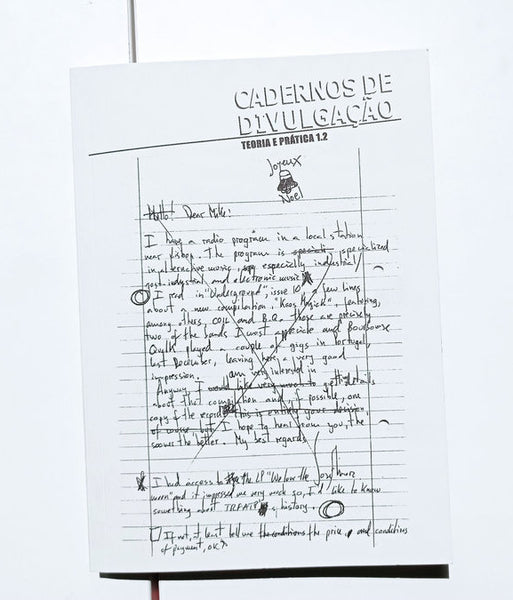 CADERNOS DE
DIVULGAÇÃO
TEORIA E PRÁTICA 1.2
Joyeux
Noel
Hello! Dear Mike:
I have a radio program in a local station
near Lisbon. The program is specialized
in alternative music, especially industrial/
post-industrial and electronic music.
I read in "Underground", issue 10, a few lines
about a new compilation, "Kaos Magick", featuring,
among others, COIL and B.Q. These are precisely
two of the bands I most appreciate and Bourbonese
Qualk played a couple of gigs in Portugal,
last December, leaving here a very good
impression. am very interested in
Anyway, I would like very much to get details
about that compilation and if possible, one
copy of the record this is entirely your decision,
of course but I hope to hear from you, the
sooner the better. My best regards
I had access to the LP "We love the
and it impressed me very much so, I'd like to know
something about history.
If not, at least tell me the conditions the price and conditions
of payment, ok?